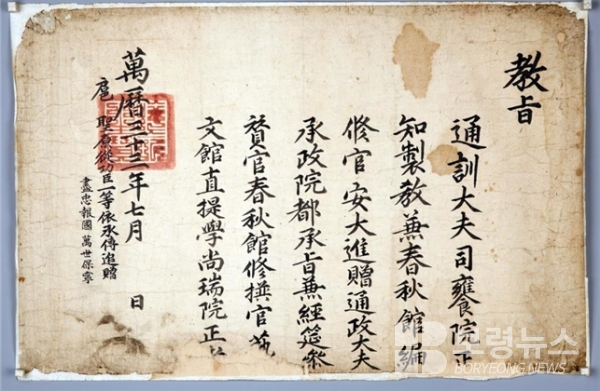 教旨
通訓大夫司饔院正
知製教兼春秋館編
修官安大進贈通政大夫
承政院都承旨兼經筵參
贊官春秋館修撰官藝
文館直提學尚瑞院正
萬曆三十三年七月 日
扈聖原從功臣一等依承傳追贈
盡忠報國 萬世保寧
보령뉴스
BORYEONG NEWS